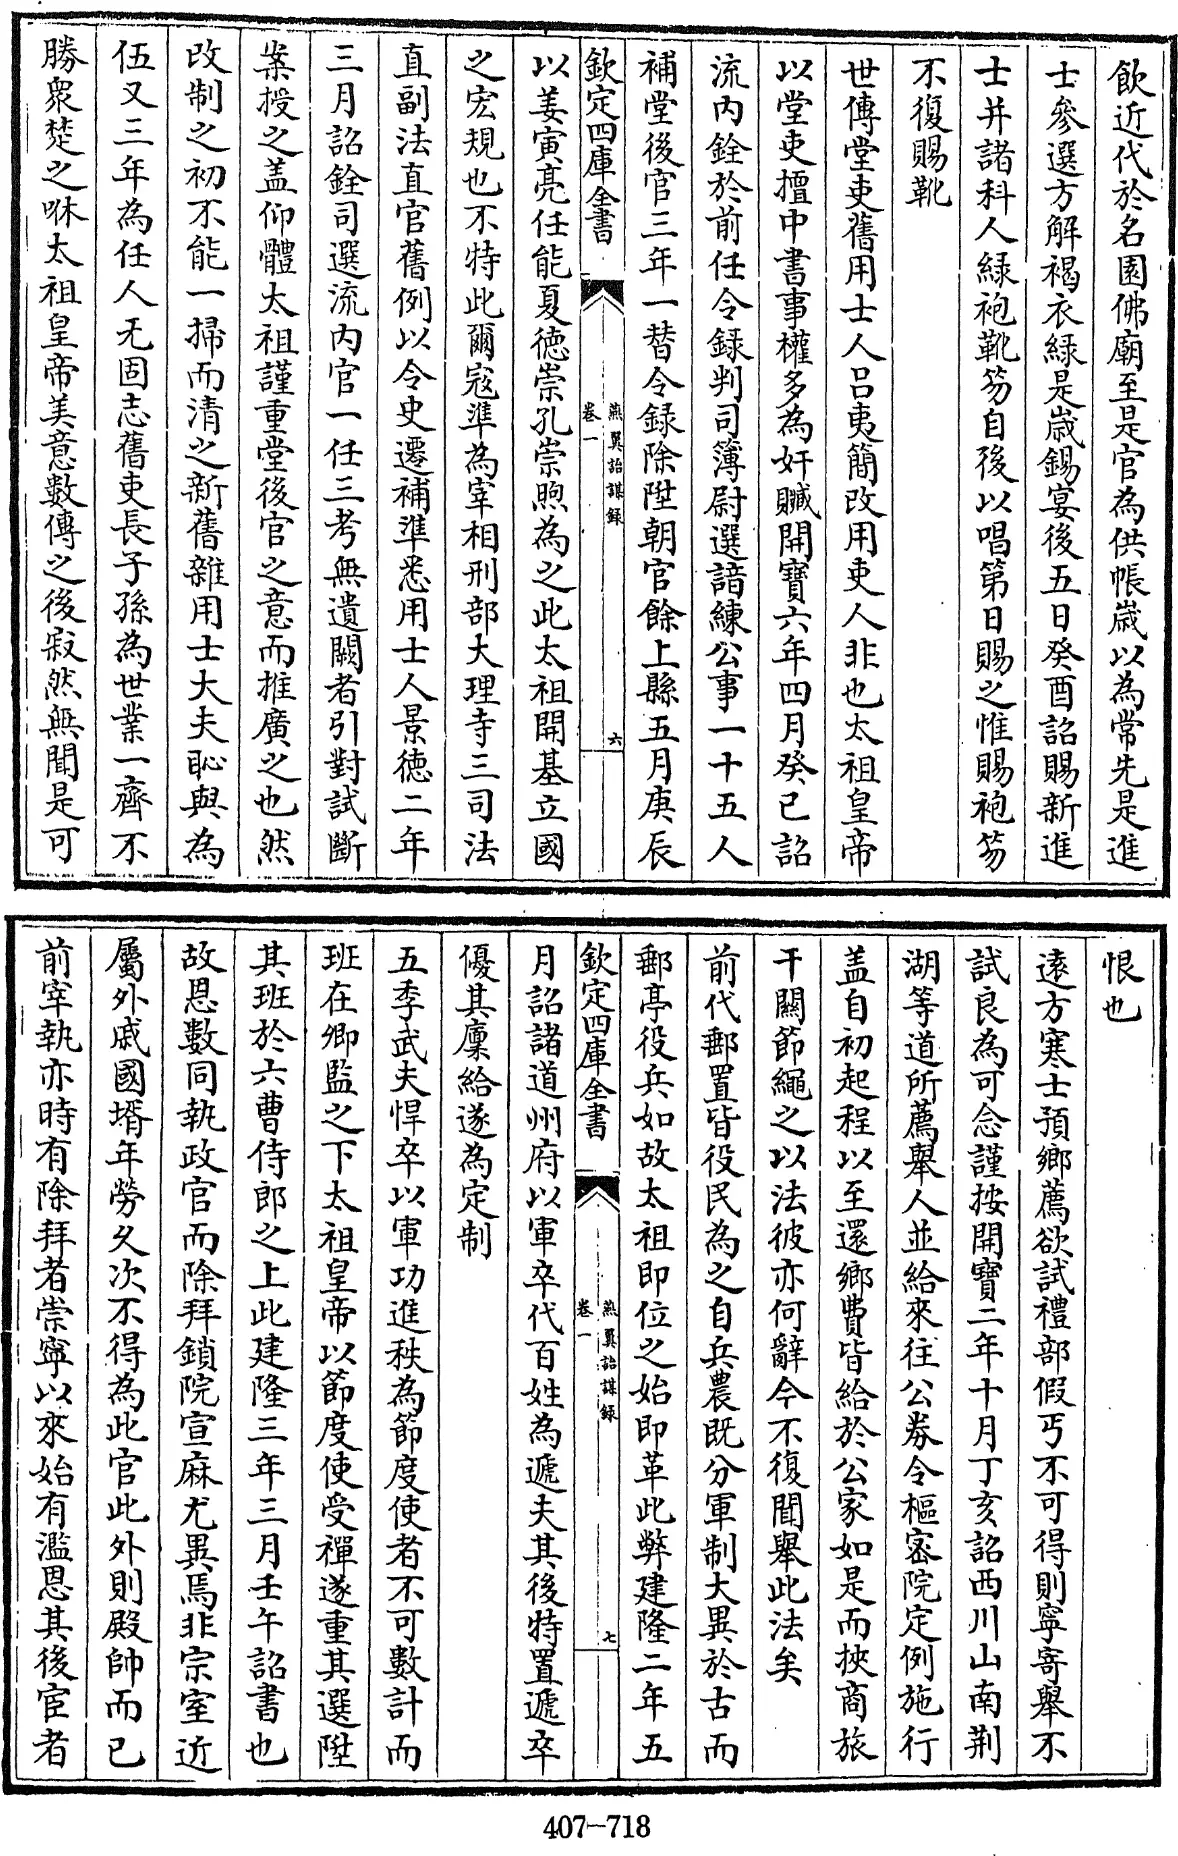 飲近代於名園佛廟至是官為供帳歲以為常先是進
士參選方解褐衣緑是歲錫宴後五日癸酉詔賜新進
士并諸科人緑袍靴笏自後以唱第日賜之惟賜袍笏
不復賜靴
世傳堂吏舊用士人吕夷簡改用吏人非也太祖皇帝
以堂吏擅中書事權多為奸贓開寶六年四月癸已詔
流内銓於前任令録判司簿尉選諳練公事一十五人
補堂後官三年一替令録除陞朝官餘上縣五月庚辰
欽定四庫全書
燕翼詒謀録
卷一
六
以姜寅亮任能夏德崇孔崇煦為之此太祖開基立國
之宏規也不特此爾宼準為宰相刑部大理寺三司法
直副法直官舊例以令史遷補準悉用士人景德二年
三月詔銓司選流内官一任三考無遺闕者引對試斷
案授之盖仰體太祖謹重堂後官之意而推廣之也然
改制之初不能一掃而清之新舊雜用士大夫恥與為
伍又三年為任人无固志舊吏長子孫為世業一齊不
勝衆楚之咻太祖皇帝美意數傳之後寂然無聞是可
恨也
逺方寒士預鄉薦欲試禮部假丐不可得則寧寄舉不
試良為可念謹按開寶二年十月丁亥詔西川山南荆
湖等道所薦舉人並給來往公劵令樞密院定例施行
盖自初起程以至還鄉費皆給於公家如是而挾商旅
干關節繩之以法彼亦何辭今不復聞舉此法矣
前代郵置皆役民為之自兵農既分軍制大異於古而
郵亭役兵如故太祖即位之始即革此弊建隆二年五
欽定四庫全書
燕翼詒謀録
卷一
七
月詔諸道州府以軍卒代百姓為遞夫其後特置遞卒
優其廩給遂為定制
五季武夫悍卒以軍功進秩為節度使者不可數計而
班在卿監之下太祖皇帝以節度使受禪遂重其選陞
其班於六曹侍郎之上此建隆三年三月壬午詔書也
故恩數同執政官而除拜鎖院宣麻尤異焉非宗室近
屬外戚國壻年勞久次不得為此官此外則殿帥而已
前宰執亦時有除拜者崇寧以來始有濫恩其後宦者
407-718